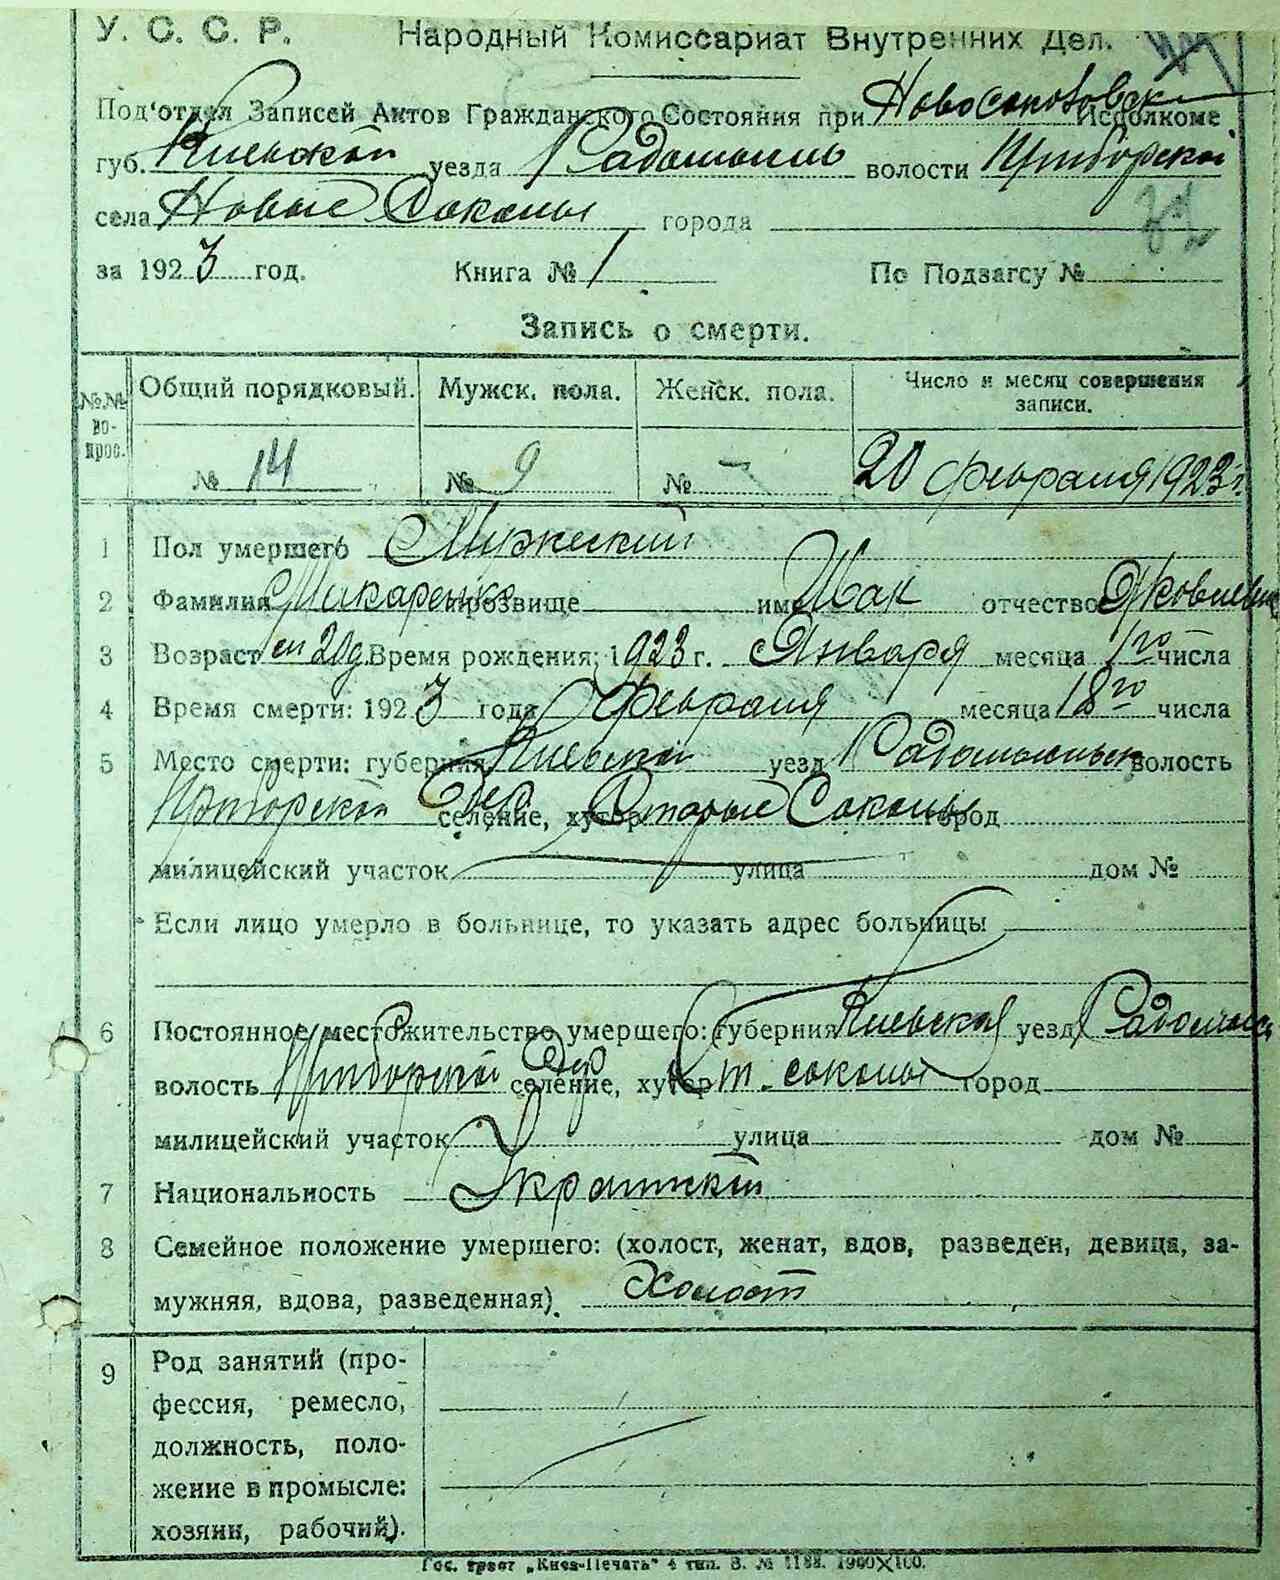 У. С. С. Р. Народный Комиссариат Внутренних Дел.
Под'отдел Записей Актов Гражданского Состояния при Исполкоме
губ. Киевской уезда Радомысль волости Приборской
села Новые Соколы города
за 1923 год. Книга № 1 По Подзагсу №
Запись о смерти.
№№ вопрос. Общий порядковый. Мужск. пола. Женск. пола. Число и месяц совершения записи.
№ 14 № 9 № – 20 февраля 1923 г.
1 Пол умершего Мужеский
2 Фамилия Макаренко прозвище имя отчество Яковлевич
3 Возраст Время рождения: 1923 г. Января месяца 1го числа
4 Время смерти: 1923 года Февраля месяца 18го числа
5 Место смерти: губерния Киевской уезд волость
Приборской селение, хутор Дер Старые Соколы город
милицейский участок улица дом №
Если лицо умерло в больнице, то указать адрес больницы
6 Постоянное местожительство умершего: губерния Киевской уезд
волость Приборской селение, хутор Дер Ст. соколы город
милицейский участок улица дом №
7 Национальность
8 Семейное положение умершего: (холост, женат, вдов, разведен, девица, за-
мужняя, вдова, разведенная). Холост
9 Род занятий (про-
фессия, ремесло,
должность, поло-
жение в промысле:
хозяин, рабочий).
Гос. трест „Киев-Печать" 4 тип. З. № 1188. 1900×100.